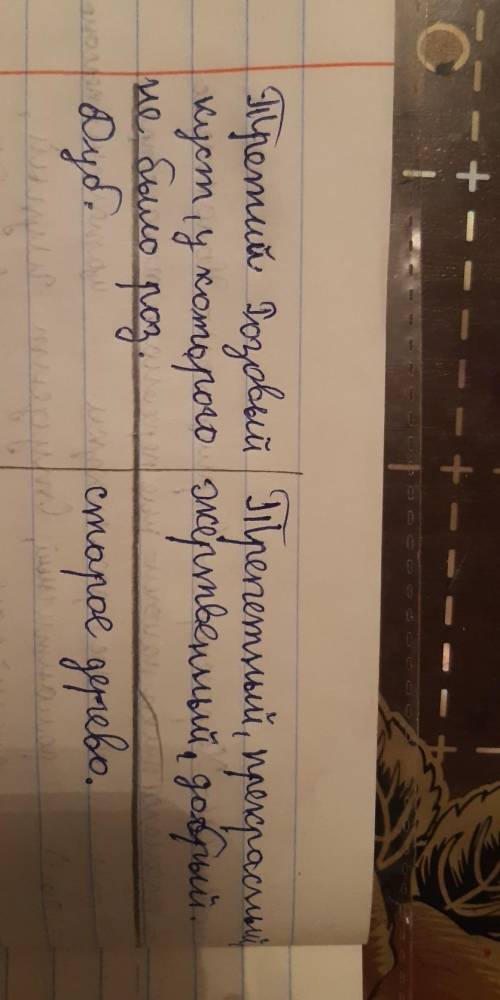 Третий Розовый
куст, у которого
не было роз.
Трепетный, прекрасный,
жертвенный, добрый.
Дуб.
старое дерево.